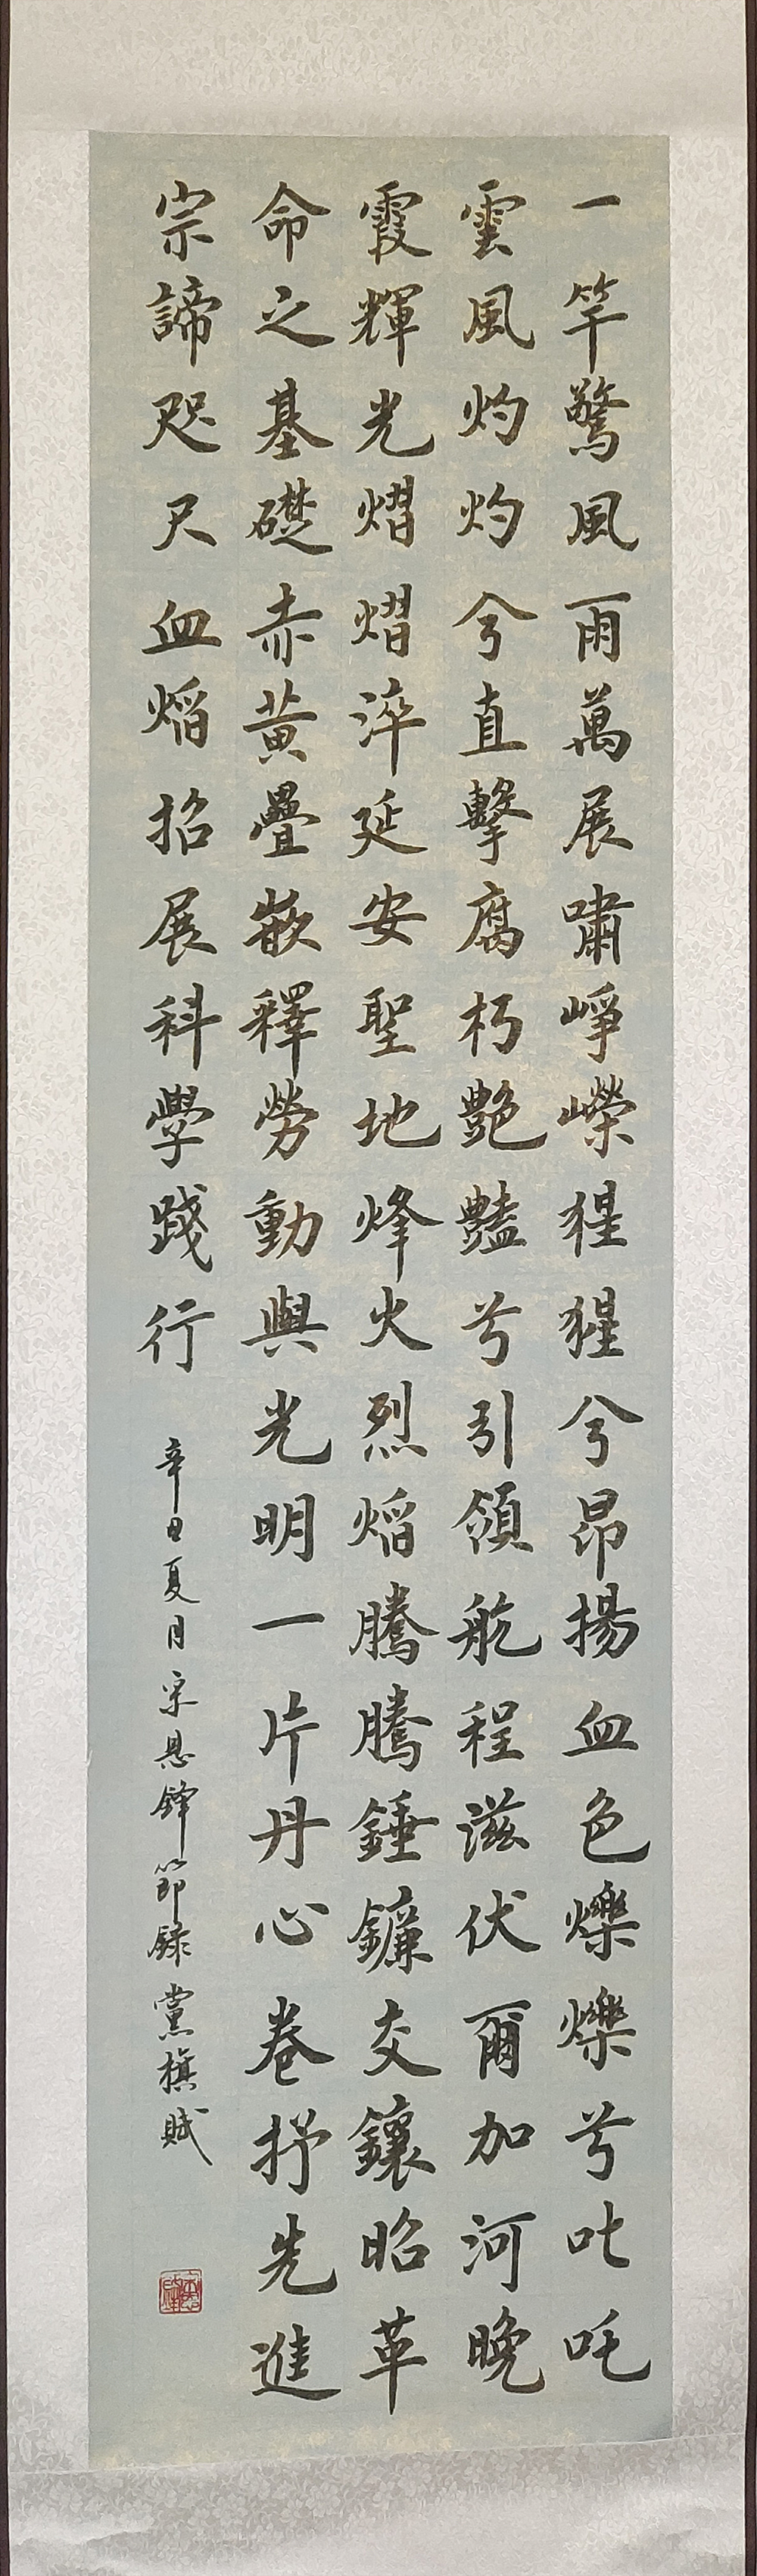 一竿驚風雨萬展嘯崢嶸猩猩兮昂揚血色爍爍兮叱吒
雲風灼灼兮直擊腐朽艷豔兮引領航程滋伏爾加河晚
霞輝光熠熠淬延安聖地烽火烈焰騰騰錘鐮交鑲昭革
命之基礎赤黃疊嵌釋勞動與光明一片丹心卷抒先進
宗諦咫尺血焰招展科學踐行
辛丑夏月宋恩鋒節錄黨旗賦